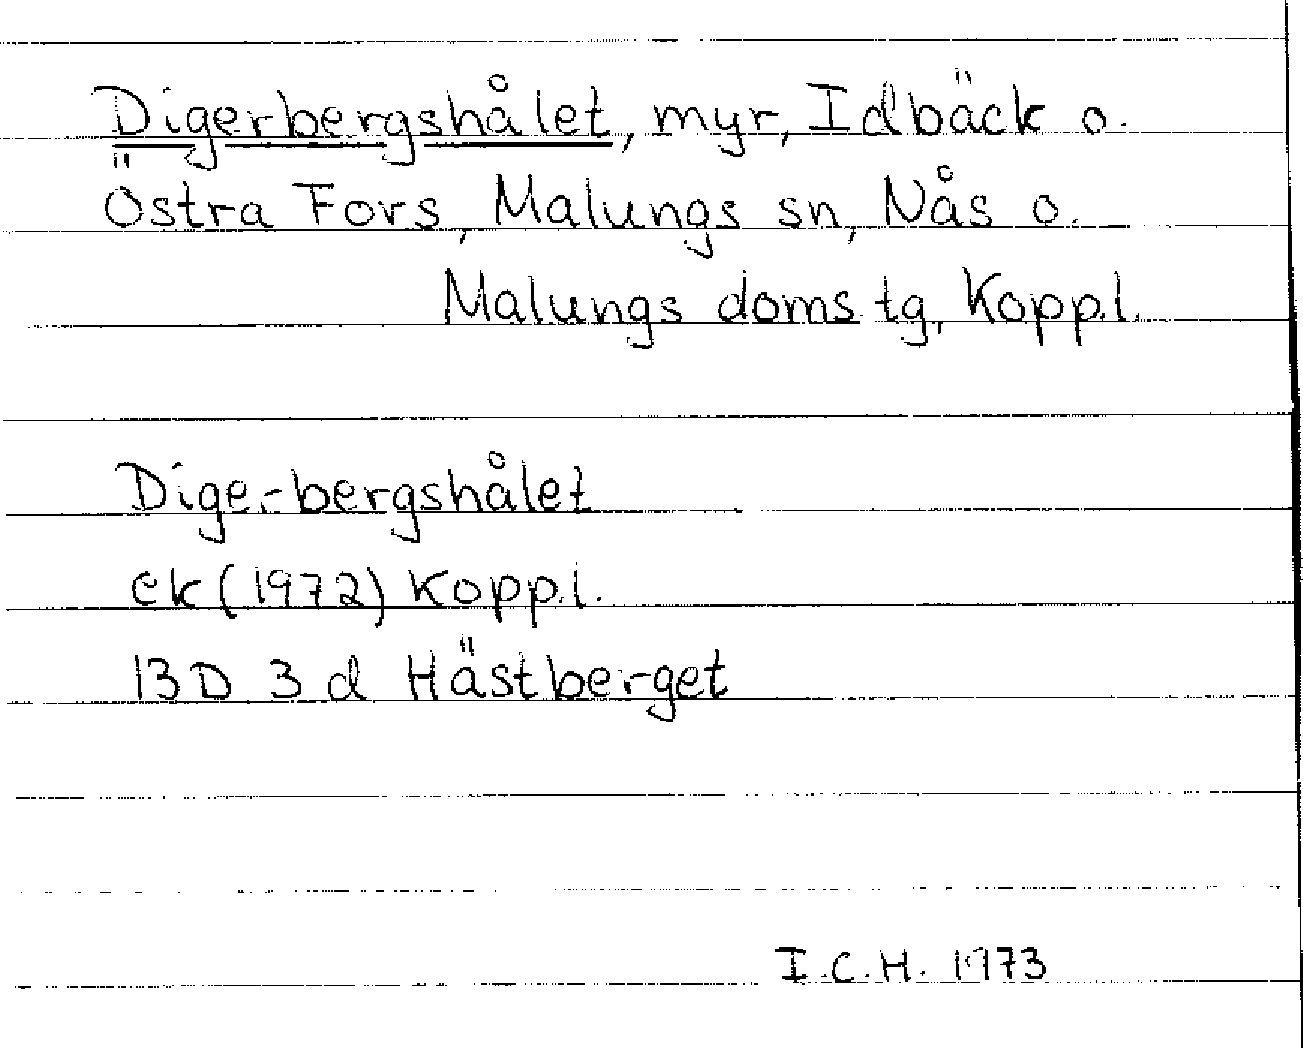 Digerbergshålet, myr, Idbäck o.
Östra Fors, Malungs sn, Nås o.
Malungs doms tg, Kopp.l.
Digerbergshålet
ek (1972) Kopp.l.
13D 3d Hästberget
I.C.H. 1973